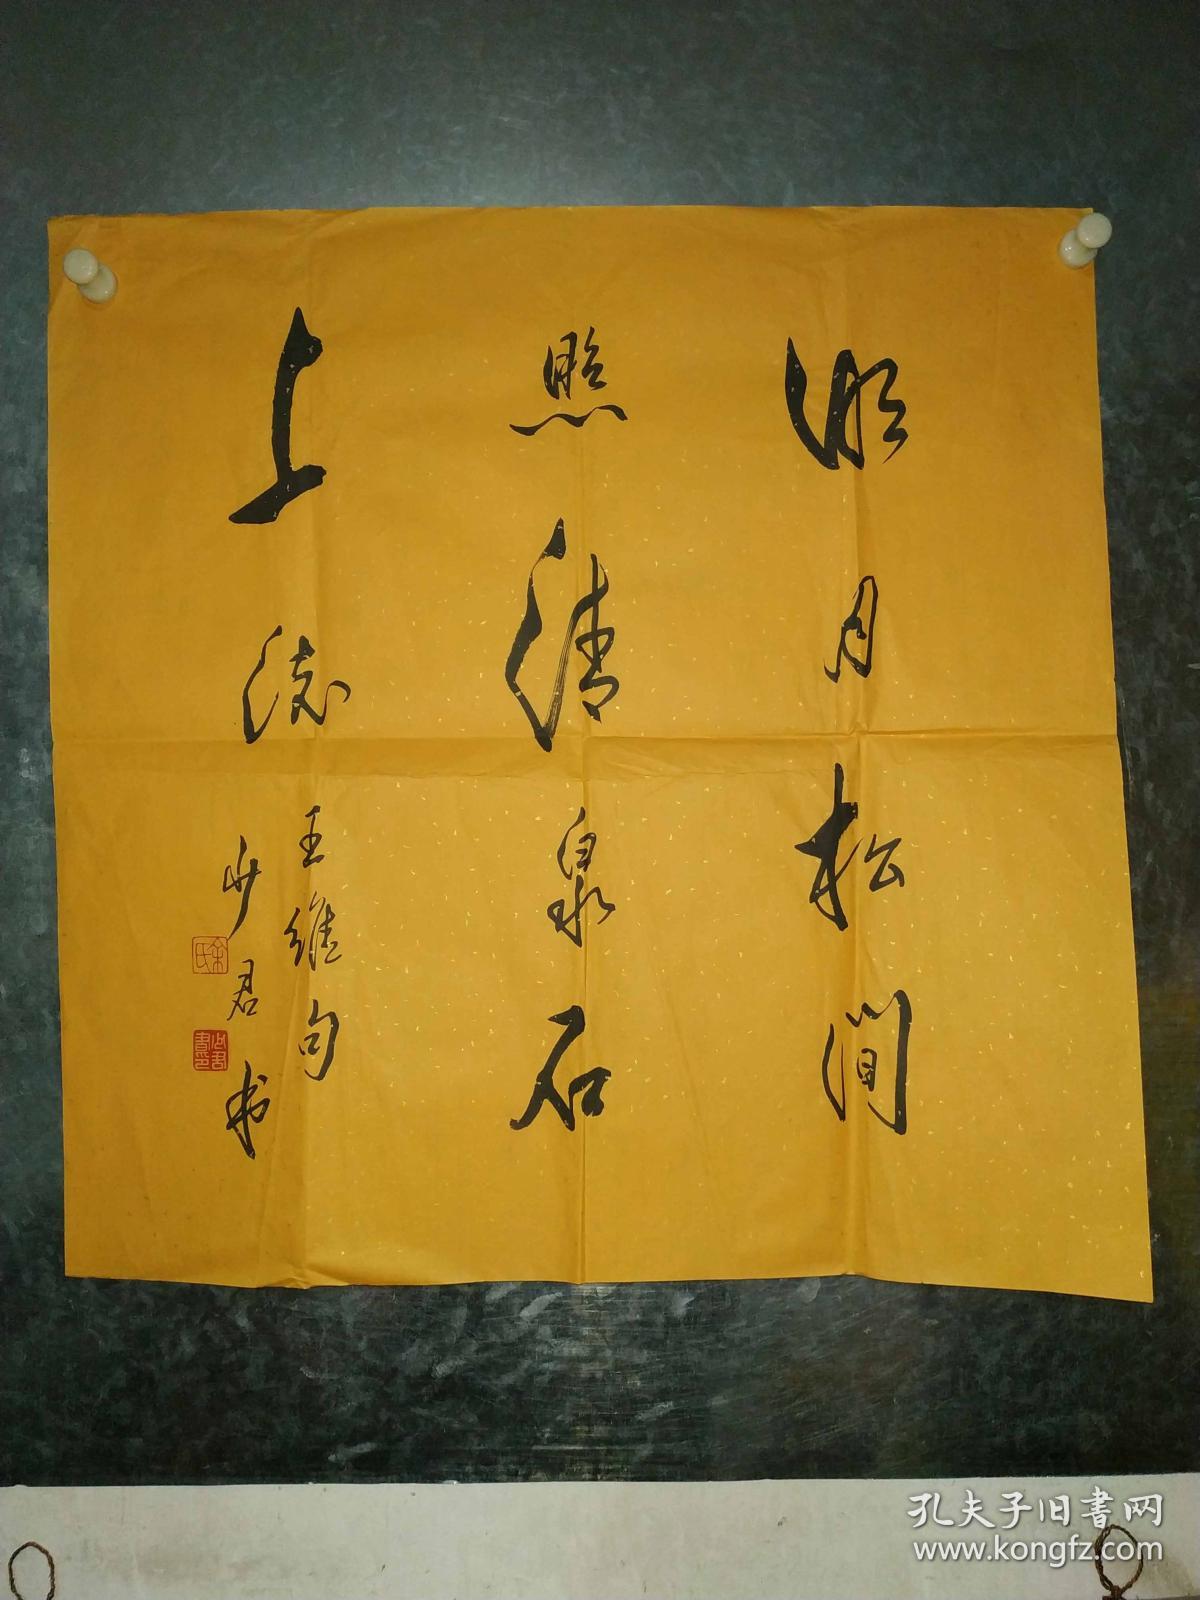 明月松间
照清泉石
上流
王维句
少君书
少君書印
孔夫子旧书网
www.kongfz.com